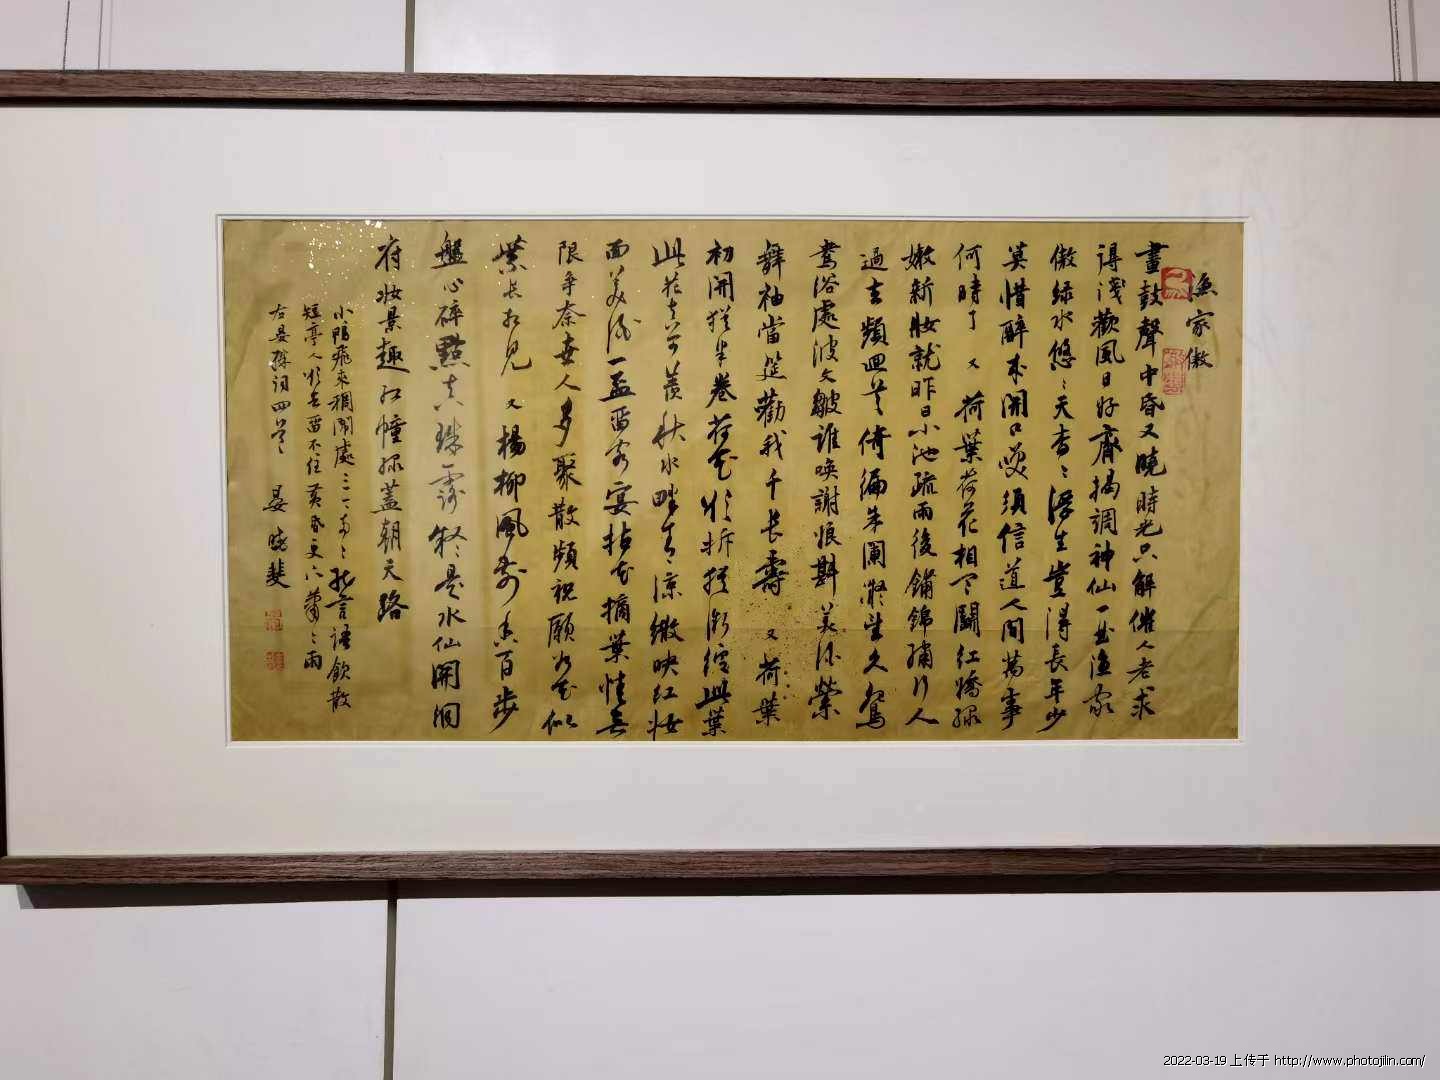 漁家傲
畫鼓聲中昏又曉時光只解催人老求
得淺歡風日好齊揭調神仙一曲漁家
傲綠水悠〻天杳〻浮生豈得長年少
莫惜醉來開口笑須信道人間萬事
何時了 又 荷葉荷花相間鬭紅嬌綠
嫩新妝就昨日小池疏雨後鋪錦繡行人
過去頻迴首倚徧朱闌凝望久鴛
鴦浴處波文皺誰喚謝娘斟美酒縈
舞袖當筵勸我千長壽 又 荷葉
初開猶半卷荷花欲拆猶微綻此葉
此花真可羨秋水畔青〻涼繖映紅妝
面美酒一盃留客宴拈花摘葉情無
限爭奈世人多聚散頻祝願如花似
葉長相見 又 楊柳風前香百步
盤心碎點真珠露疑〻是水仙開洞
府妝景趣紅幢綠蓋朝天路
小鴨飛來稠鬧處三〻兩〻能言語飲散
短亭人欲去留不住黃昏更下蕭〻雨
右晏殊詞四首 晏曉斐
2022-03-19 上传于 http://www.photojilin.com/